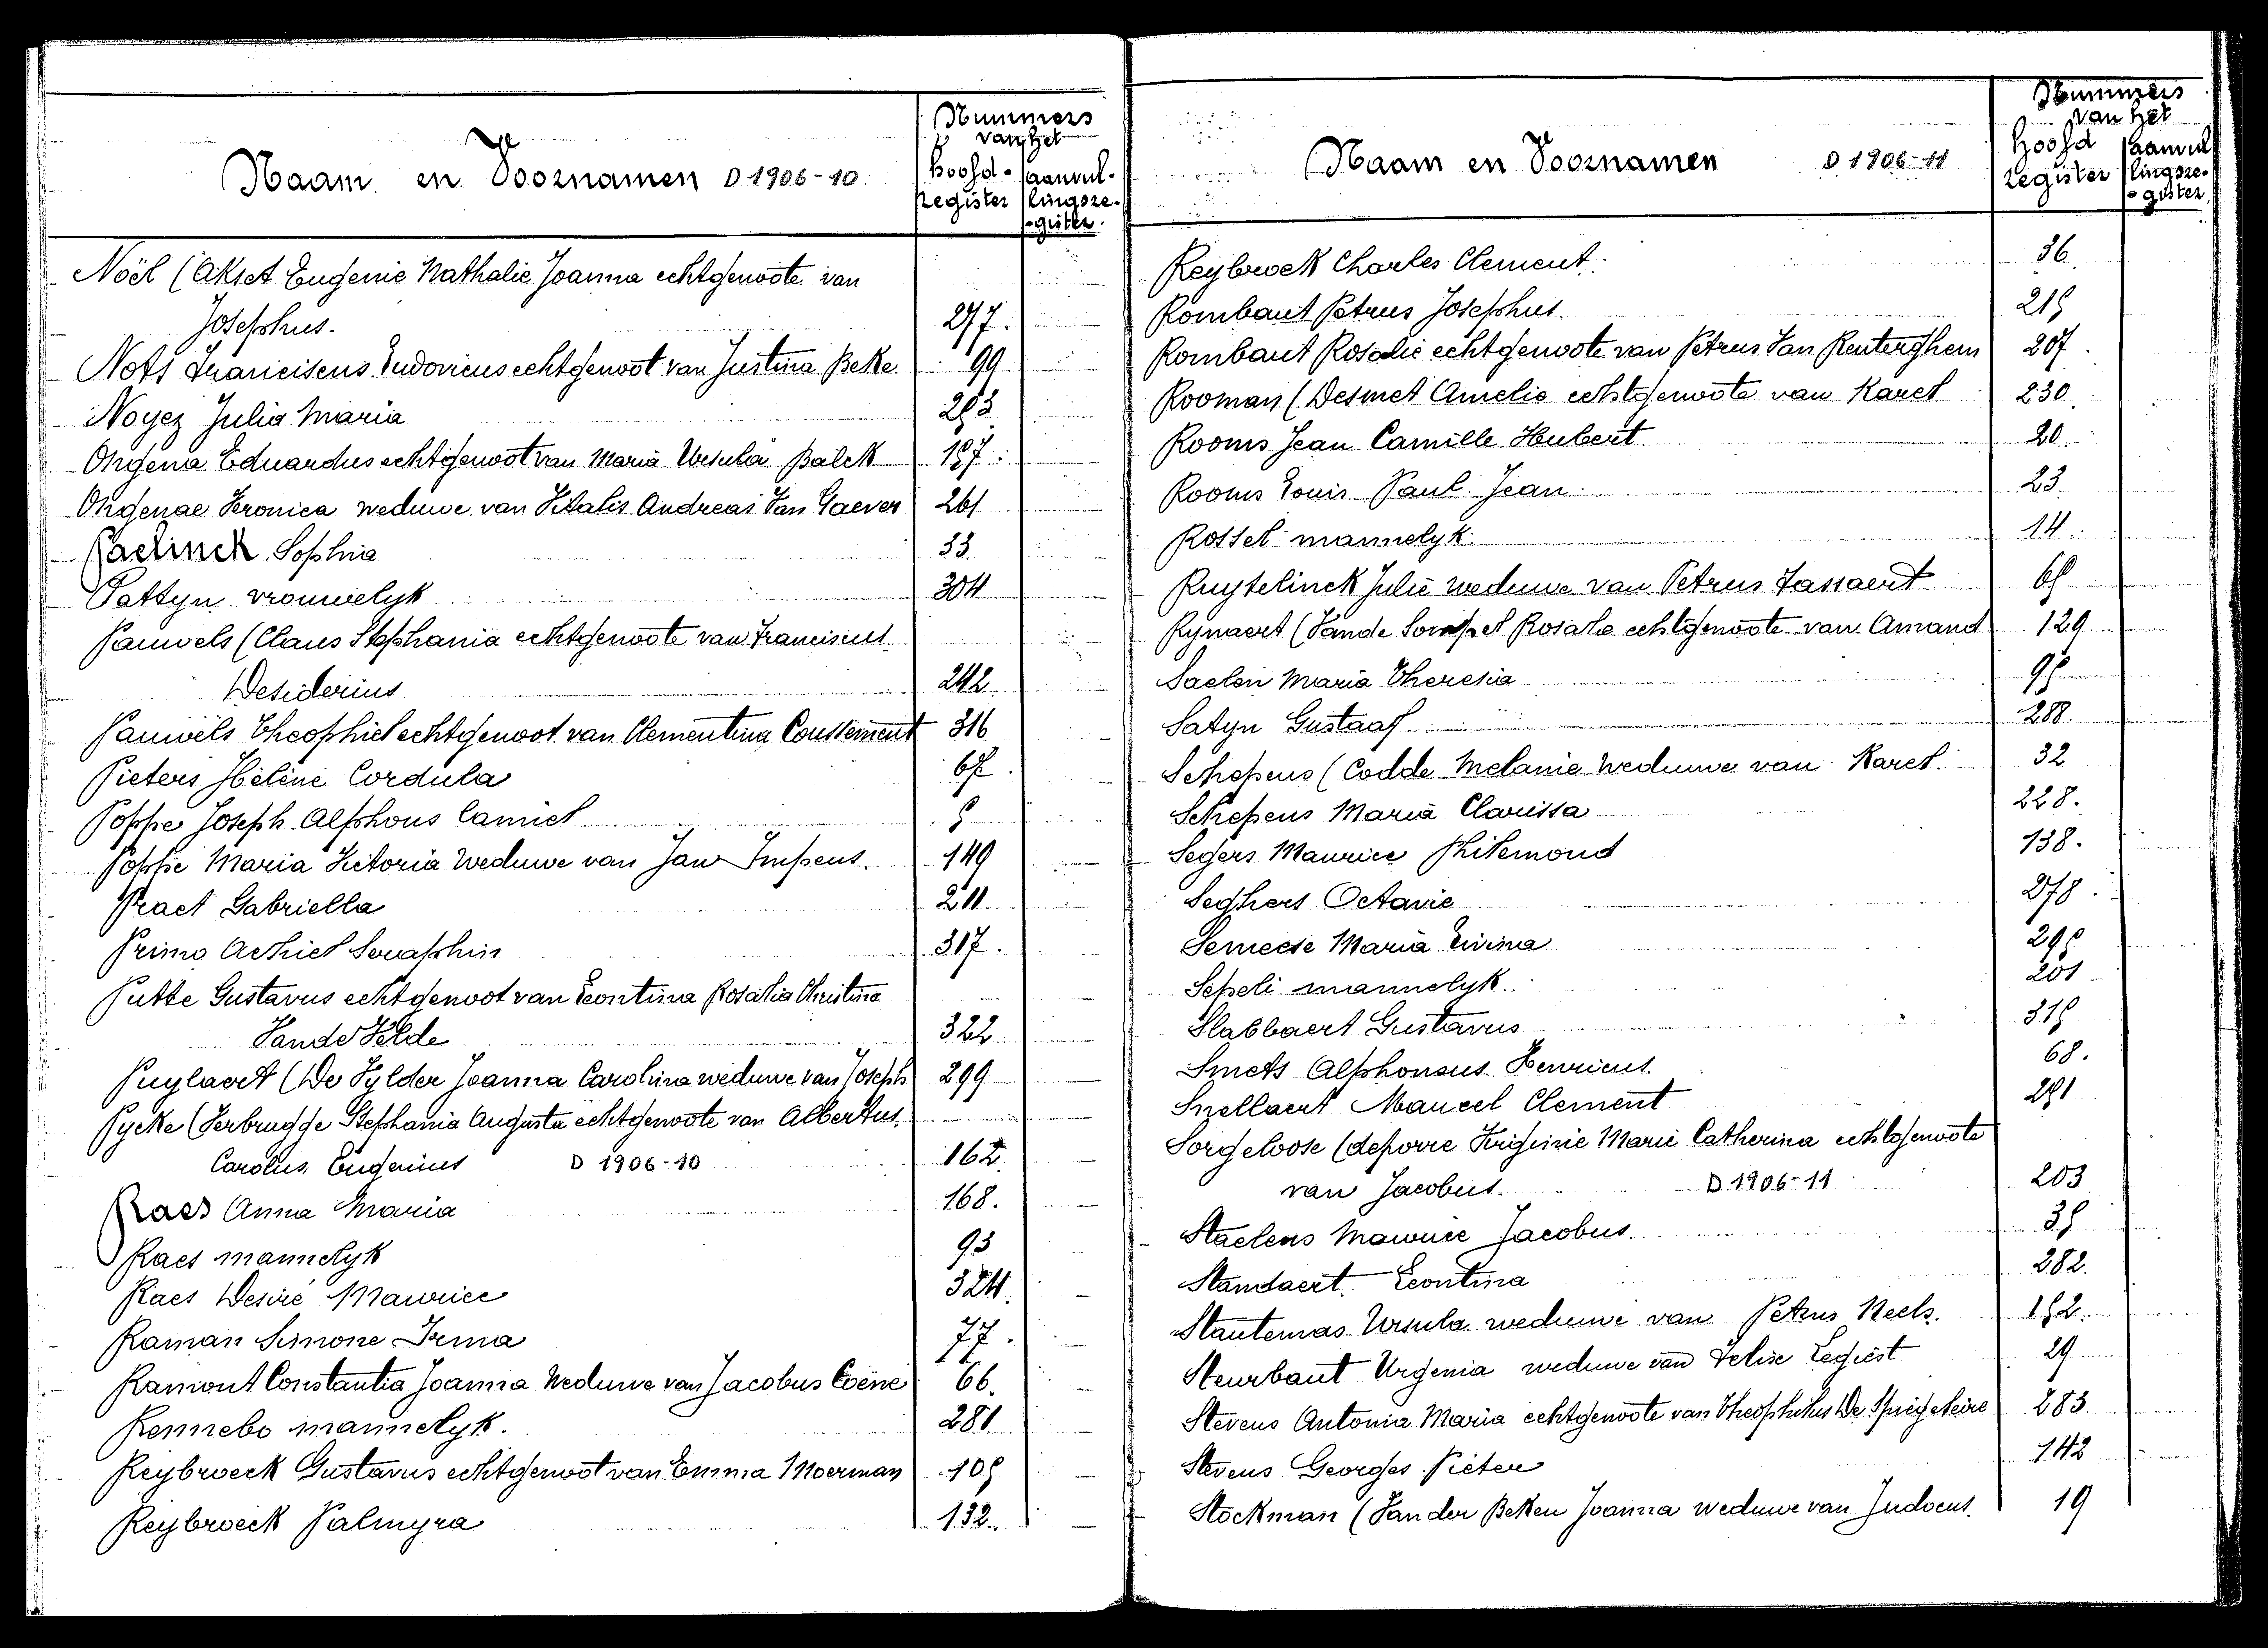 Naam en Voornamen D 1906-10
Nummers
van het
hoofd-
register
aanvul-
lingsre-
gister.
Noël (Aktet Eugenie Nathalie Joanna echtgenoote van
Josephus. 277.
Nots Franciscus Ludovicus echtgenoot van Justina Beke 99
Noyez Julia Maria
Ongena Eduardus echtgenoot van Maria Ursula Balck
Ongenae Veronica weduwe van Vitalis Andreas Van Gaever 261
Paelinck Sophia 33.
Pattyn vrouwelyk 304
Pauwels (Claus Stephania echtgenoote van Franciscus
Desiderius 242.
Pauwels Theophiel echtgenoot van Clementina Coussement 316
Pieters Hélène Cordula
Poppe Joseph Alphons Camiel
Poppe Maria Victoria Weduwe van Jan Impens. 149
Praet Gabriella 211.
Primo Achiel Seraphin 317.
Putte Gustavus echtgenoot van Leontina Rosalia Christina
Vande Velde 322
Puylaert (De Vylder Joanna Carolina weduwe van Joseph 299
Pycke (Verbrugge Stephania Augusta echtgenoote van Albertus
Carolus Eugenius D 1906-10 162.
Raes Anna Maria 168.
Raes mannelyk 93
Raes Desiré Maurice 324.
Raman Simone Irma 77.
Ramont Constantia Joanna Weduwe van Jacobus Coene 66.
Rennebo mannelyk. 281
Reybroeck Gustavus echtgenoot van Emma Moerman 105
Reybroeck Palmyra 132.
Naam en Voornamen D 1906-11
Nummers
van het
hoofd
register
aanvul
lingsre-
gister
Reybroeck Charles Clement. 36.
Rombaut Petrus Josephus. 215
Rombaut Rosalie echtgenoote van Petrus Van Renterghem 207.
Rooman (Desmet Amelie echtgenoote van Karel 230
Rooms Jean Camille Hubert 20.
Rooms Louis Paul Jean 23.
Rossel mannelyk. 14.
Ruytelinck Julie weduwe van Petrus Tassaert
Rynaert (Vande Sompel Rosalie echtgenoote van Amand 129
Saelen Maria Theresia 95
Satyn Gustaaf 288.
Schepens (Codde Melanie Weduwe van Karel. 32
Schepens Maria Clarissa 228.
Segers Maurice Philemond 138.
Seghers Octavie 278.
Semeese Maria Livina 295
Sepeli mannelyk. 201
Slabbaert Gustavus 315
Smets Alphonsus Henricus. 68.
Snellaert Marcel Clement 291
Sorgeloose (deporre Virginie Marie Catherina echtgenoote
van Jacobus. D 1906-11 203
Staelens Maurice Jacobus. 35
Standaert Leontina 282.
Stautemas Ursula weduwe van Petrus Neels. 152.
Steurbaut Urgenia weduwe van Felix Legiest 29
Stevens Antonia Maria echtgenoote van Theophilus De Spiegeleire 283
Stevens Georges Pieter 142
Stockman (Van der Beken Joanna weduwe van Judocus. 19